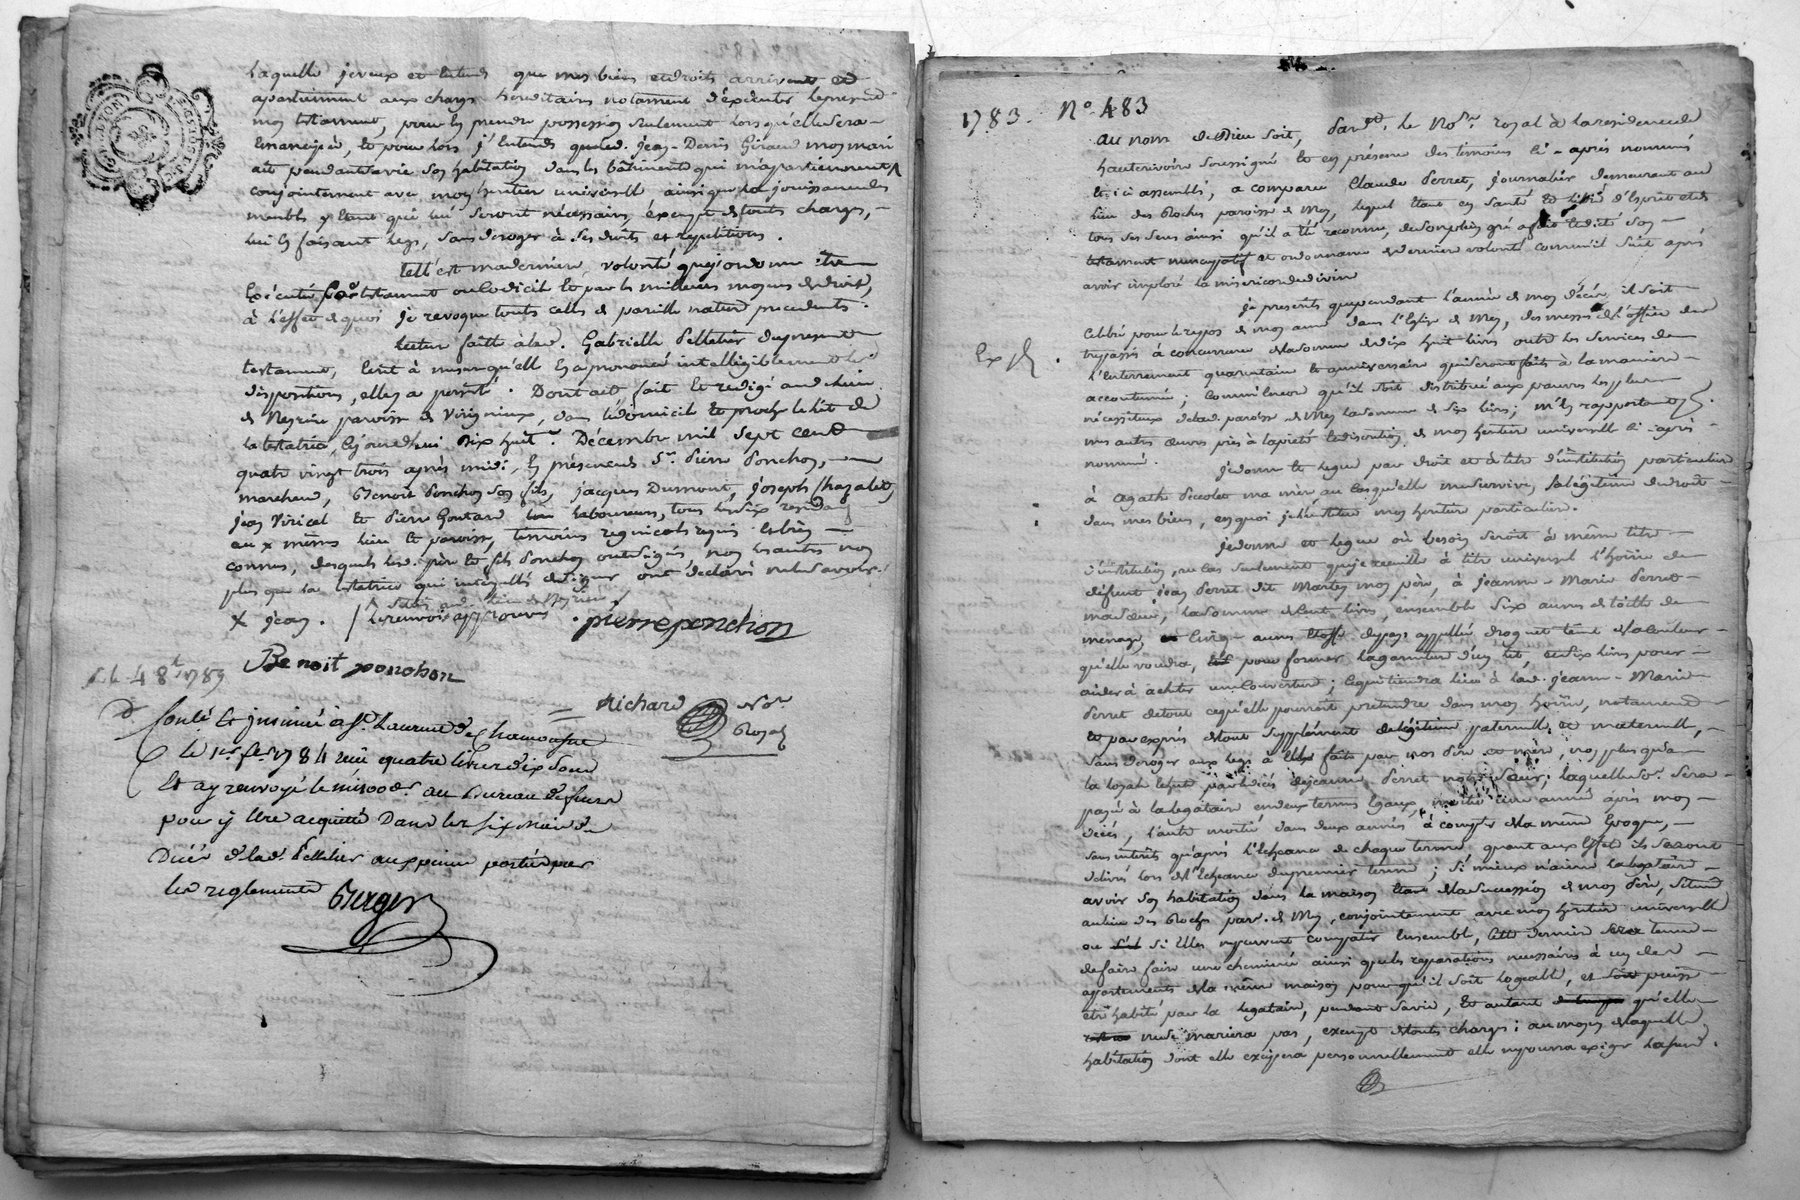 laquelle je veux et entends que mes biens et droits arrivent et
apartiennent aux charges héréditaires notament d'exécuter le présent
mon testament, pour en prendre possession seulement lorsqu'elle sera
émancipée, et pour lors j'entends que led. Jean-Denis Giraud mon mari
ait pendant sa vie son habitation dans les bâtiments qui m'apartiennent
conjointement avec mon héritier universelle ainsi que la jouissance des
meubles y étant qui lui seront nécessaires, exempt de touts charges,
lui en faisant legs, sans déroger à ses droits et répétitions.
telle est ma dernière volonté que j'ordonne être
exécutée par testament ou codicile et par les meilleurs moyens de droit,
à l'effet de quoi je revoque touts celles de pareille nature précédents.
lecture faitte à lad. Gabrielle Pelletier du présent
testament, écrit à mesure qu'elle en a prononcé intelligiblement les
dispositions, elle y a persisté. Dont acte, fait et redigé aud. lieu
de Neyrieu paroisse de Virignieux, dans le domicile et proche le lit de
la testatrice, ce jourd'hui dix huit Décembre mil sept cent
quatre vingt trois après midi, en présence de Sr. Pierre Ponchon,
marchand, Benoit Ponchon son fils, Jacques Dumont, Joseph Chazalet,
Jean Viricel et Pierre Goutard laboureurs, tous les six résidants
aux mêmes lieu et paroisse, témoins
connus, desquels led. père et fils Ponchon ont signés, non les autres non
plus que la testatrice qui interpellés de signer ont déclaré ne le savoir.
x Jean. / le renvoi approuvé. pierre ponchon
Benoit ponchon
48 1789
Richard No.re
Royal
Conlé et insinué à St. Laurent de Chamousset
le 1er fer. 1784 reçu quatre livres dix sous
Et ay renvoyé le au Bureau de feurs
pour y être acquitté Dans les six mois du
Décès de lad. Pelletier aux peines portées par
les reglements Berger
1783. No. 483
Au nom de Dieu soit, pardt. le No.re royal à la residence de
hauterivoire soussigné et en présence des témoins ci-après nommés
et ici assemblés, a comparu Claude Perret, journalier demeurant au
lieu des Roches paroisse de Mey, lequel étant en santé et liberté d'esprit et de
tous ses sens ainsi qu'il a été reconnu, de son plein gré a fait et dicté son
testament nuncupatif et ordonnance de dernière volonté comme il suit après
avoir imploré la misericorde divine
Je prescris que pendant l'année de mon décès il soit
célébré pour le repos de mon ame dans l'Eglise de Mey, des messes de l'office des
trépassés à concurrence de la somme de dix huit livres outre les services de
l'enterrement quarantaine et anniversaire qui seront faits à la manière
accoutumée; comm'encore qu'il soit distribué aux pauvres les plus
nécessiteux de lad. paroisse de Mey la somme de six livres; m'en rapportant p.
mes autres œuvres pies à la piété et discrétion de mon héritier universelle ci-après
nommé.
Je donne et legue par droit et à titre d'institution particulière
à Agathe ma mère au cas qu'elle me survive, la légitime de droit
dans mes biens, en quoi je l'institue mon héritier particulière.
Je donne et legue où besoin seroit à même titre
d'institution, au cas seulement que je recueille à titre universel l'hoirie de
défunt Jean Perret dit Martey mon père, à Jeanne-Marie Perret
ma sœur, la somme de cent livres, ensemble six aunes de toille de
ménage, cinq aunes étoffe du pays appellée droguet teint de la couleur
qu'elle voudra, pour former la garniture d'un lit, et six livres pour
aider à acheter une couverture; ce qui tiendra lieu à lad. Jeanne-Marie
Perret de tout ce qu'elle pourroit prétendre dans mon hoirie, notament
et par exprès de tout supplément de légitime paternelle et maternelle,
sans déroger aux legs à elle faits par nos père et mère, non plus qu'à
payé à la legataire, en deux termes égaux, moitié une année après mon
décès, l'autre moitié dans deux années à compter de la même époque,
sans intérêts qu'après l'échéance de chaque terme quant aux effets ils seront
délivrés lors de l'échéance du premier terme; si mieux n'aime la legataire
avoir son habitation dans la maison étant de la succession de mon père, située
au lieu des Roches par. de Mey, conjointement avec mon héritier universelle
ou si elles ne peuvent compatir ensemble, cette dernière sera tenue
de faire faire une cheminée ainsi que les réparations nécessaires à un des
appartements de la même maison pour qu'il soit logeable, et puisse
être habité par la legataire, pendant sa vie, et autant qu'elle
ne se mariera pas, exempt de touts charges; au moyen de laquelle
habitation dont elle excipera personnellement elle ne pourra exiger